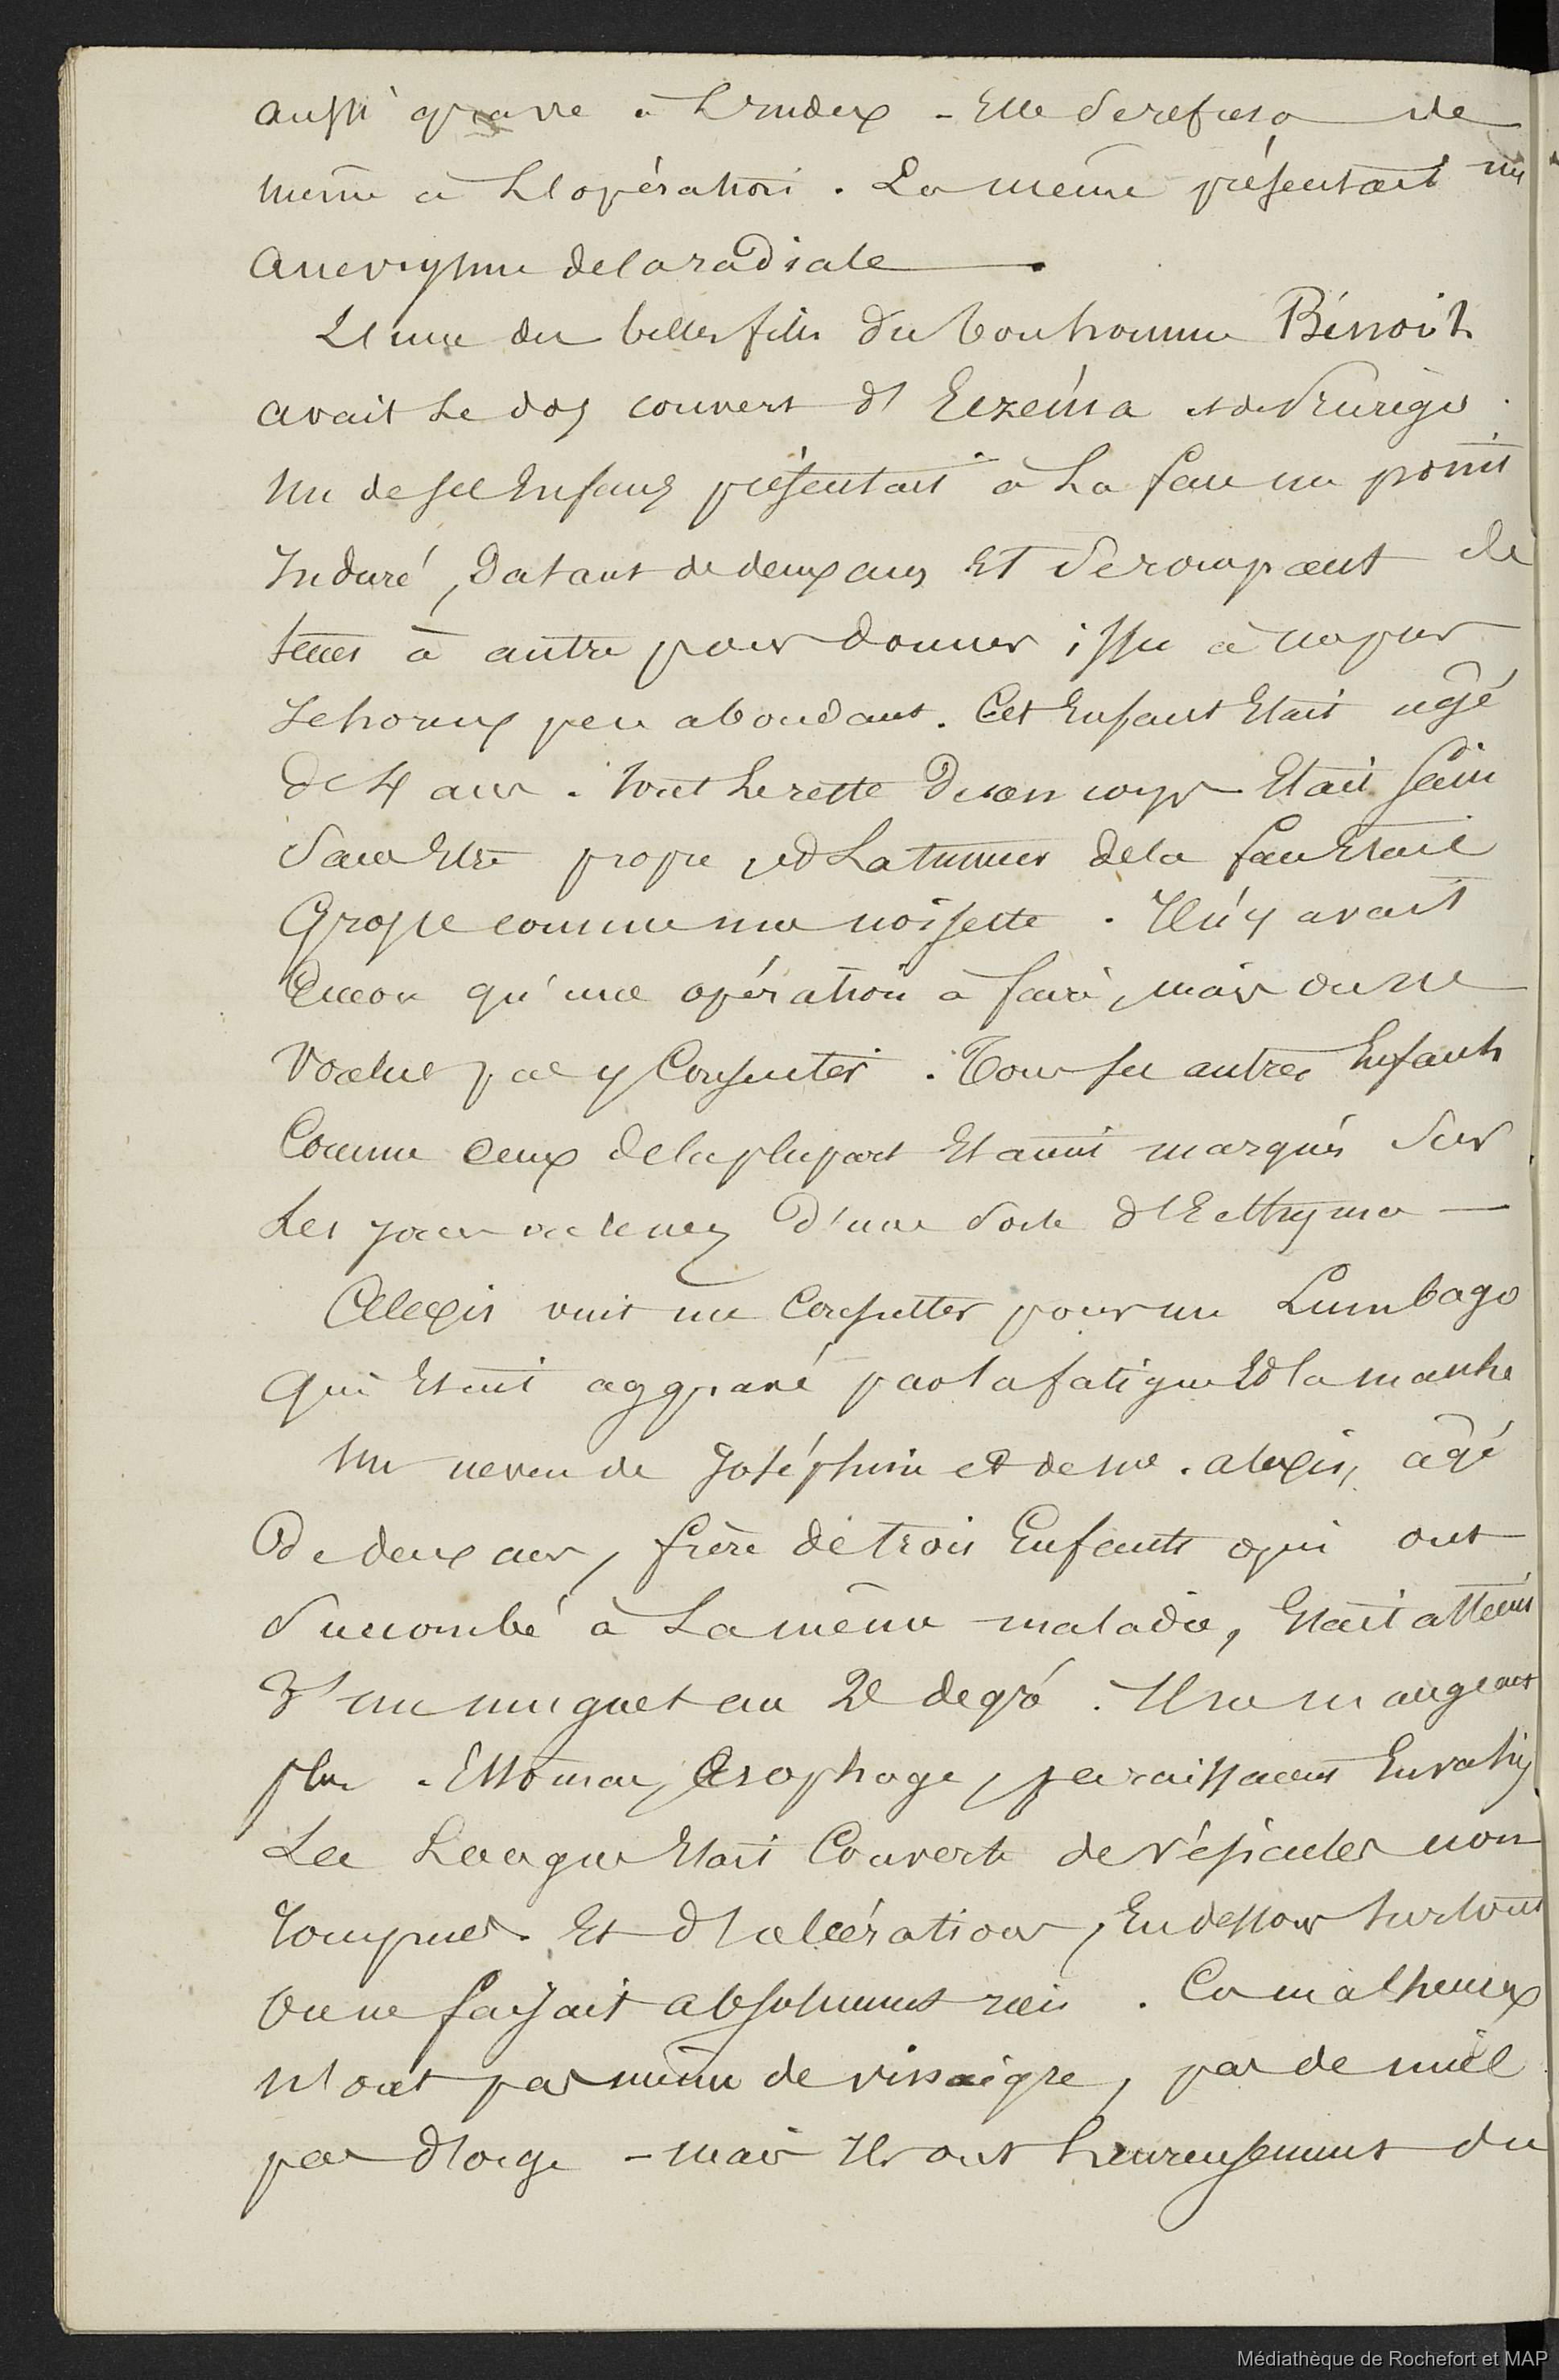 aussi grave à L'index - Elle Se refusa de
même à L'opération. La même présentait un
anevrysme de la radiale.
L'une des belles filles du bonhomme Bénoît
avait Le dos couvert d'Eczéma et de Prurigo.
Un de ses Enfans présentait à La face un point
Induré, Datant de deux ans Et Se rompant de
tems à autre pour donner issu à un pus
Ichoreux peu abondant. Cet Enfant Etait agé
De 4 ans. tout Le reste De son corps Etait sain
Sans Etre propre et La tumeur de la face Etait
Grosse comme une noisette. Il n'y avait
Encor qu'une opération à faire, mais on ne
Voulut pas y Consentir. Tous ses autres Enfants
Comme Ceux de la plupart Etaient marqués Sur
Les joues ou le nez D'une Sorte d'Ecthyma —
Alexis vint me Consulter pour un Lumbago
Qui Etait aggravé par la fatigue Et la marche
Un neveu de Joséphine et de me. alexis, âgé
De deux ans, frère de trois Enfants qui ont
Succombé à La même maladie, Etait atteint
D'un muguet au 2e degré. Il ne mangeait
plus. Estomac, Œsophage, paraissaient Envahis
La Langue Etait Couverte de Vésicules non
rompues Et d'ulcérations, En dessous surtout
On ne faisait absolument rien. Ces malheureux
N'ont pas même de vinaigre, pas de miel
pas d'orge - mais Ils ont heureusement du
Médiathèque de Rochefort et MAP